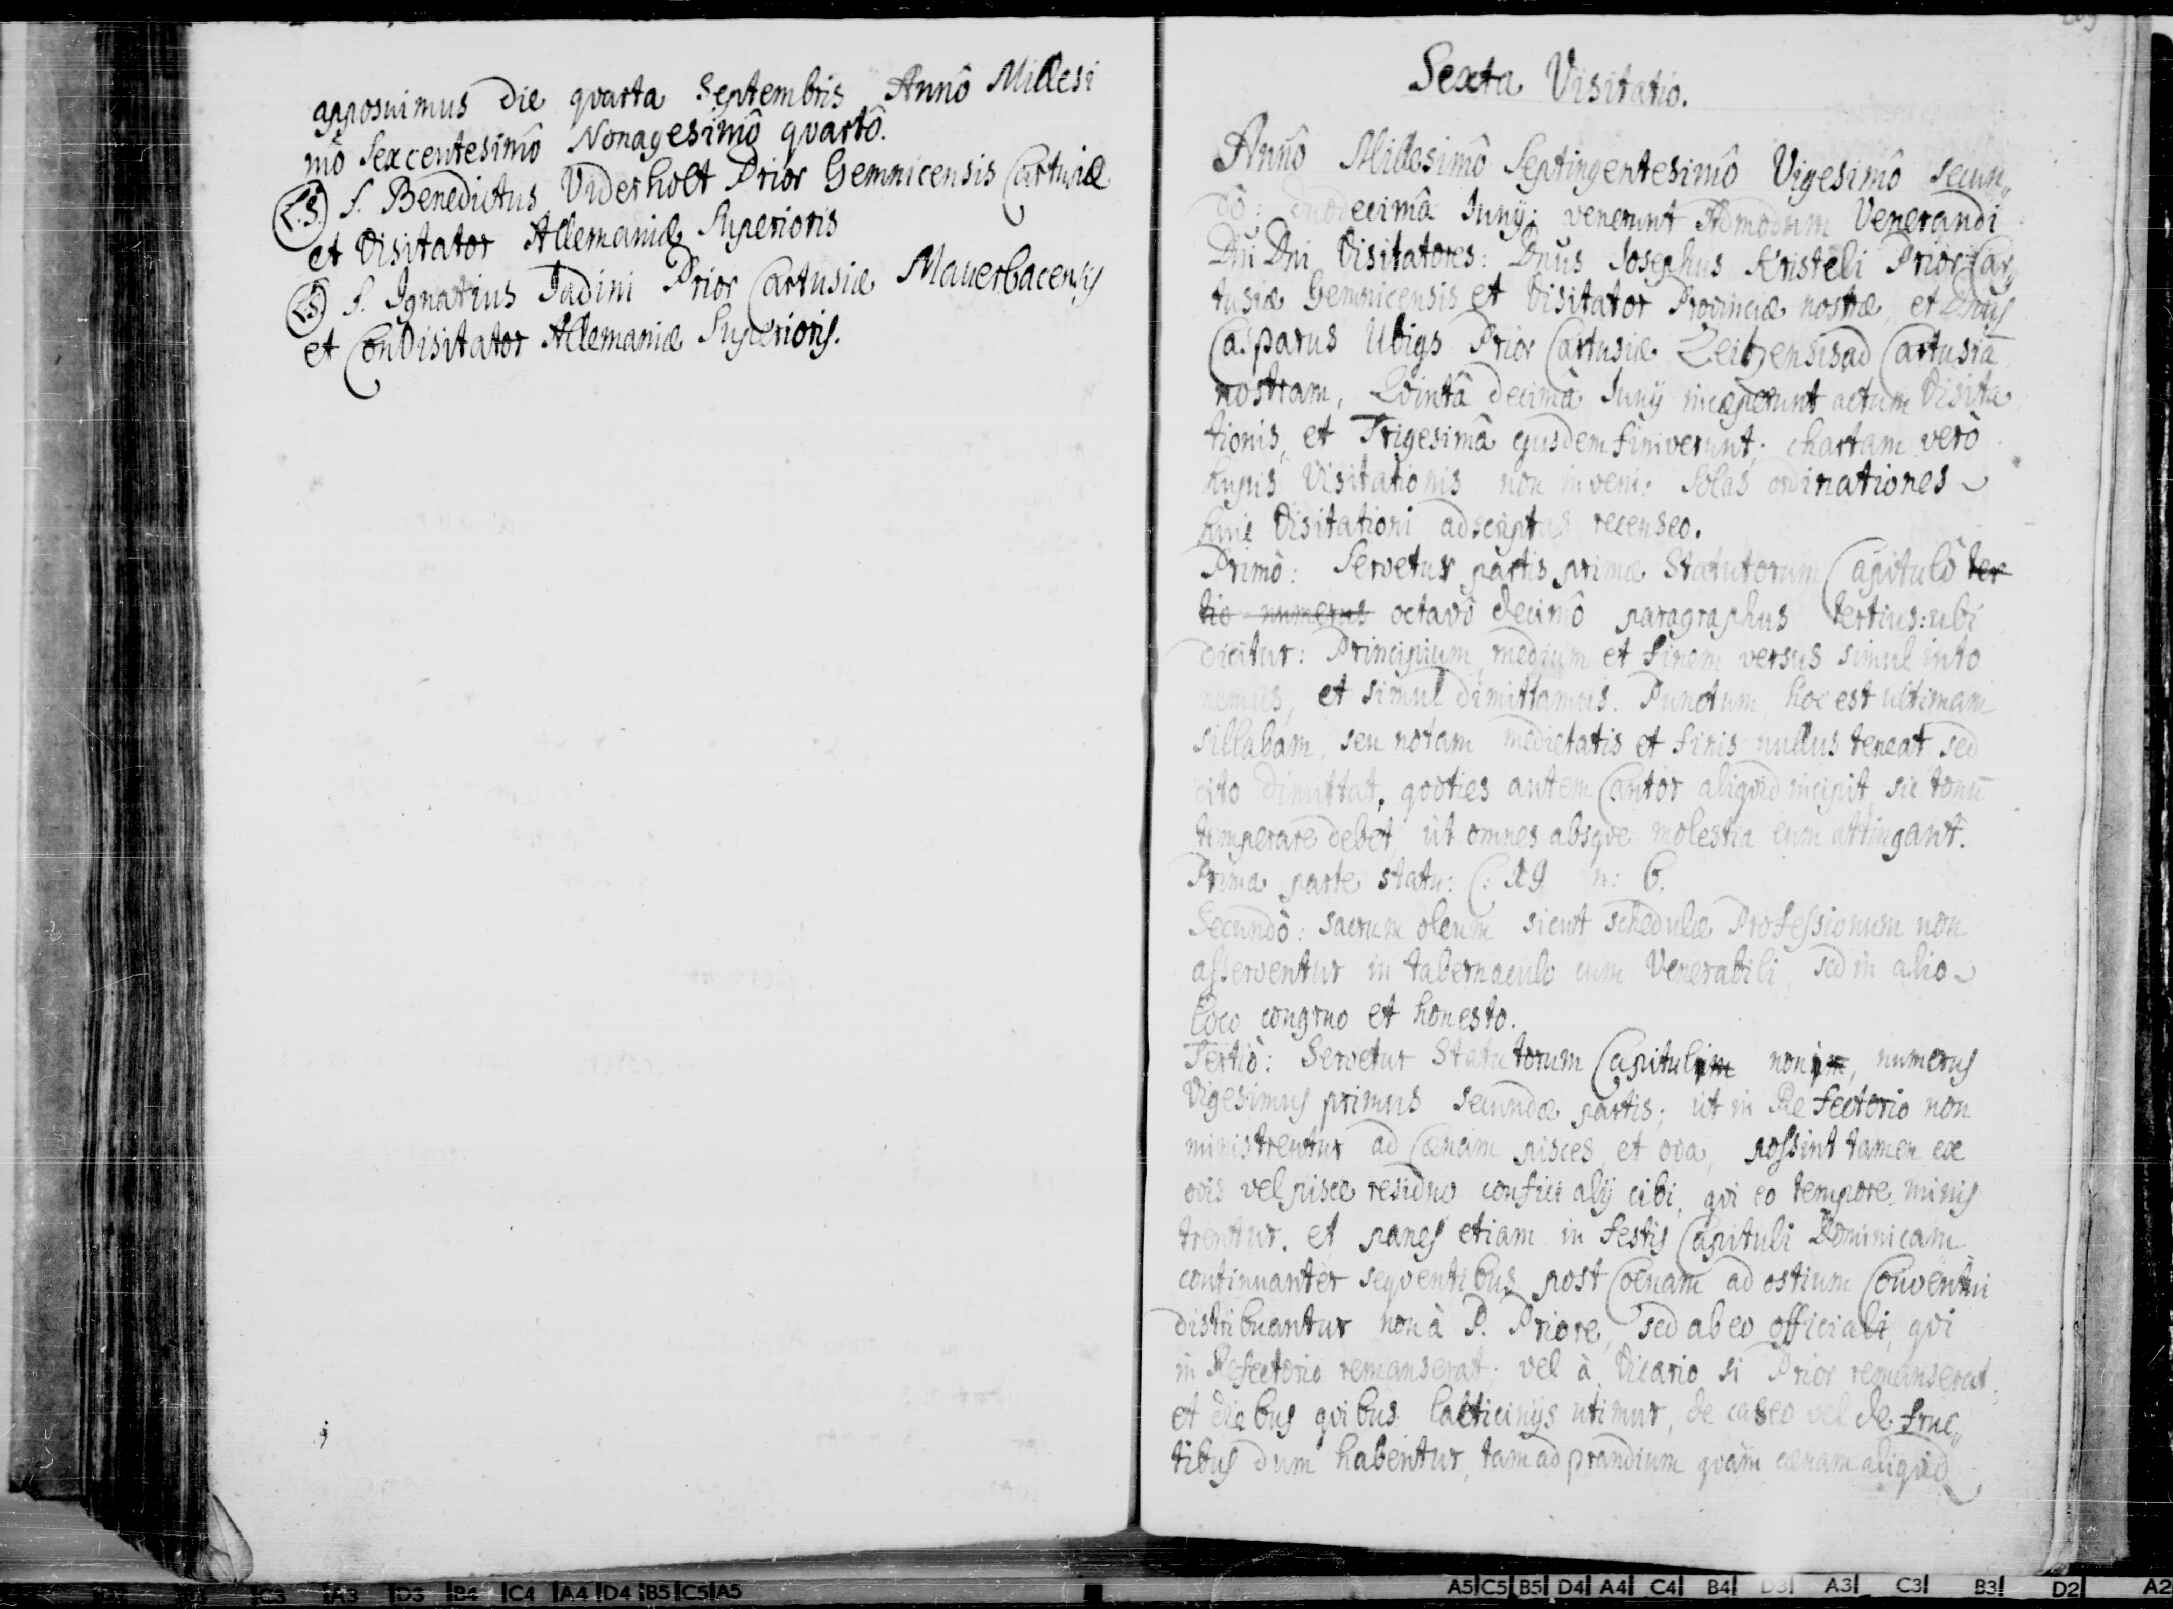 apposuimus die quarta Septembris Annô Millesi
mô Sexcentesimô Nonagesimô quartô.
L.S. f. Benedictus Viderholt Prior Gemnicensis Cartusiæ
et Visitator Allemaniæ Superioris
L.S. f. Ignatius Jadini Prior Cartusiæ Mauerbacensis
et ConVisitator Allemaniæ Superioris.
Sexta Visitatio.
Annô Millesimô Septingentesimô Vigesimô secun„
dô: duodecimâ Junij: venerunt Admodum Venerandi
Dni Dni Visitatores: Dnus Josephus Kristeli Prior Car„
tusiæ Gemnicensis et Visitator Provinciæ nostræ, et Dnus
Casparus Ubigs Prior Cartusiæ Zeitzensis ad Cartusiā
nostram, Qvintâ decimâ Junij inceperunt actum Visita
tionis, et Trigesimâ ejusdem finiverunt; chartam verò
hujus Visitationis non inveni: Solas ordinationes
huic Visitationi adscriptas recenseo.
Primò: Servetur partis primæ Statutorum Capitulô ter
tio numerus octavô decimô paragraphus tertius: ubi
dicitur: Principium, medium et finem versus simul into
nemus, et simul dimittamus. Punctum hoc est ultimam
sillabam, seu notam medietatis et finis nullus teneat sed
cito dimittat, qvoties autem Cantor aliqvid incipit, sic tonū
temperare debet, ut omnes absqve molestia eum attingant.
Prima parte statu: C: 19 n: 6.
Secundò: sacrum oleum sicut schedulæ Professionum non
asserventur in tabernaculo cum Venerabili, sed in alio
loco congruo et honesto.
Tertiò: Servetur Statutorum Capitulim nonim, numerus
Vigesimus primus secundæ partis; ut in Refectorio non
ministrentur ad Cænam pisces et ova, possint tamen ex
ovis vel pisce residuo confici alij cibi, qvi eo tempore minis
trentur. et panes etiam in festis Capituli Dominicam
continuanter seqventibus post Coenam ad ostium Conventui
distribuantur non à P. Priore, sed ab eo officiali, qvi
in Refectorio remanserat; vel à Vicario si Prior remanserat,
et diebus qvibus lacticinijs utimur, de caseo vel de fruc„
tibus dum habentur, tam ad prandium qvàm cænam aliqvid
A3 D3 B4 C4 A4 D4 B5 C5 A5
A5 C5 B5 D4 A4 C4 B4 D3 A3 C3 B3 D2 A2